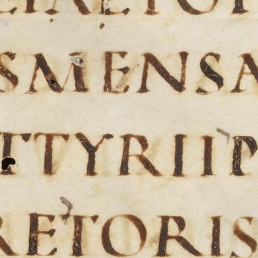 SMENSA
TTYRIIP
RETORIS